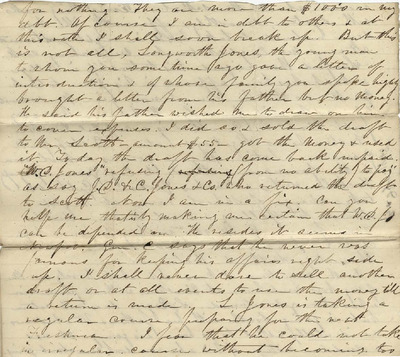 for nothing. They are more than $1000 in my
debt. Of course I am in debt to others & at
this rate I shall soon break up. But this
is not all. Longworth Jones, the young man
to whom you some time ago gave a letter of
introduction & of whose family you spoke highly
brought a letter from his father but no money.
He said his father wished me to draw on him
to cover expenses. I did so & sold the draft
to Mr. Scott amount $55 - got the money & used
it. Today the draft has come back unpaid.
W.B. Jones "refusing from no ability to pay"
as say J.B. & C. Jones & Co. who returned the draft
to Scott. Now I am in a fix. Can you
help me that by making me certain that W.B.J.
can be depended on. He resides it seems in
says that he never was
famous for keeping his affairs right side
up. I shall never dare to sell another
draft or at all events to use the money till
a return is made. L. Jones is taking a
regular course preparing for the next
Freshman. I fear that he could not take
an irregular course without becoming too